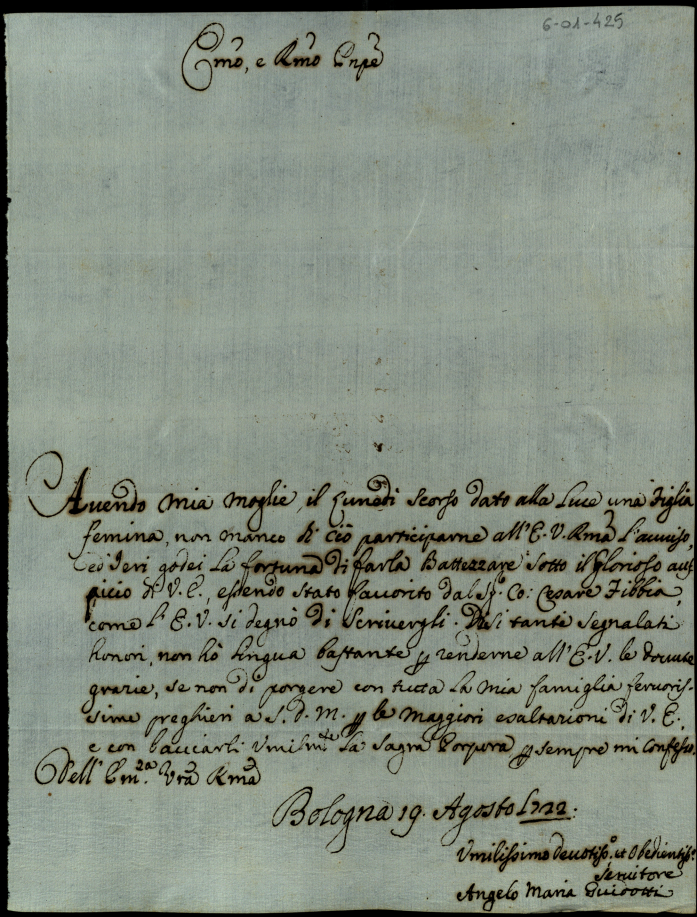 6-01-425
Emo, e Rmo Pnpe
Auendo mia moglie, il Lunedi scorso dato alla Luce una Figlia
femina, non manco di ciò participarne all'E. V. Rma L'auuiso,
ed Ieri godei La fortuna di farla Battezzare sotto il glorioso aus-
picio di V. E., essendo stato fauorito dal Sr. Co: Cesare Fibbia,
come l'E. V. si degnò di scriuergli. Di si tanti segnalati
honori, non hò lingua bastante p renderne all'E. V. le douute
grazie, se non di porgere con tutta La mia famiglia feruoris-
sime preghieri a S. D. M. p le maggiori esaltazioni di V. E.,
e con bacciarli Vmilmte La Sagra Porpora p sempre mi Confesso.
Dell'Em.za Vra Rma
Bologna 19. Agosto 1722:
Vmilissimo deuotisso. et Obedientiso.
Seruitore
Angelo Maria Guidotti